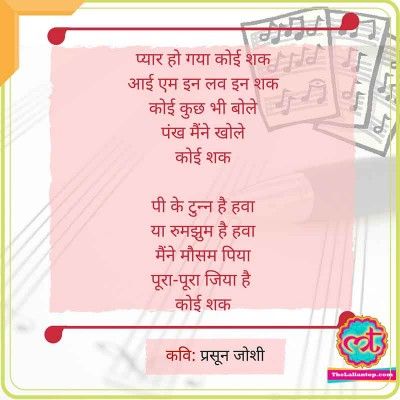 प्यार हो गया कोई शक
आई एम इन लव इन शक
कोई कुछ भी बोले
पंख मैंने खोले
कोई शक
पी के टुन्न है हवा
या रुमझुम है हवा
मैंने मौसम पिया
पूरा-पूरा जिया है
कोई शक
कवि: प्रसून जोशी
TheLallantop.com